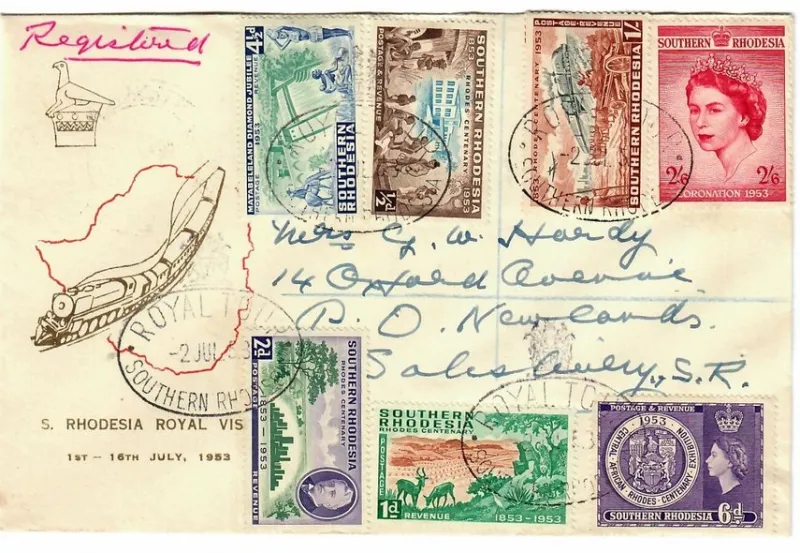 Registered
MATABELELAND DIAMOND JUBILEE
POSTAGE 1953 REVENUE
4½d
SOUTHERN RHODESIA
POSTAGE & REVENUE
½d
1853 - 1953
RHODES CENTENARY
SOUTHERN RHODESIA
POSTAGE - REVENUE
1/-
1853 RHODES CENTENARY 1953
SOUTHERN RHODESIA
SOUTHERN RHODESIA
2/6 2/6
CORONATION 1953
ROYAL TOUR
-2 JUL 53
SOUTHERN RHODE
Mrs G. W. Hardy
14 Oxford Avenue
P. O. Newlands
Salisbury, S.R.
ROYAL TOU
-2 JUL 53
SOUTHERN RHO
S. RHODESIA ROYAL VIS
1ST - 16TH JULY, 1953
2d
POSTAGE 1853 - 1953 REVENUE
SOUTHERN RHODESIA
RHODES CENTENARY
SOUTHERN RHODESIA
RHODES CENTENARY
POSTAGE
1d
REVENUE 1853-1953
ROYAL TO
POSTAGE & REVENUE
1953
CENTRAL AFRICAN RHODES CENTENARY EXHIBITION
6d
SOUTHERN RHODESIA